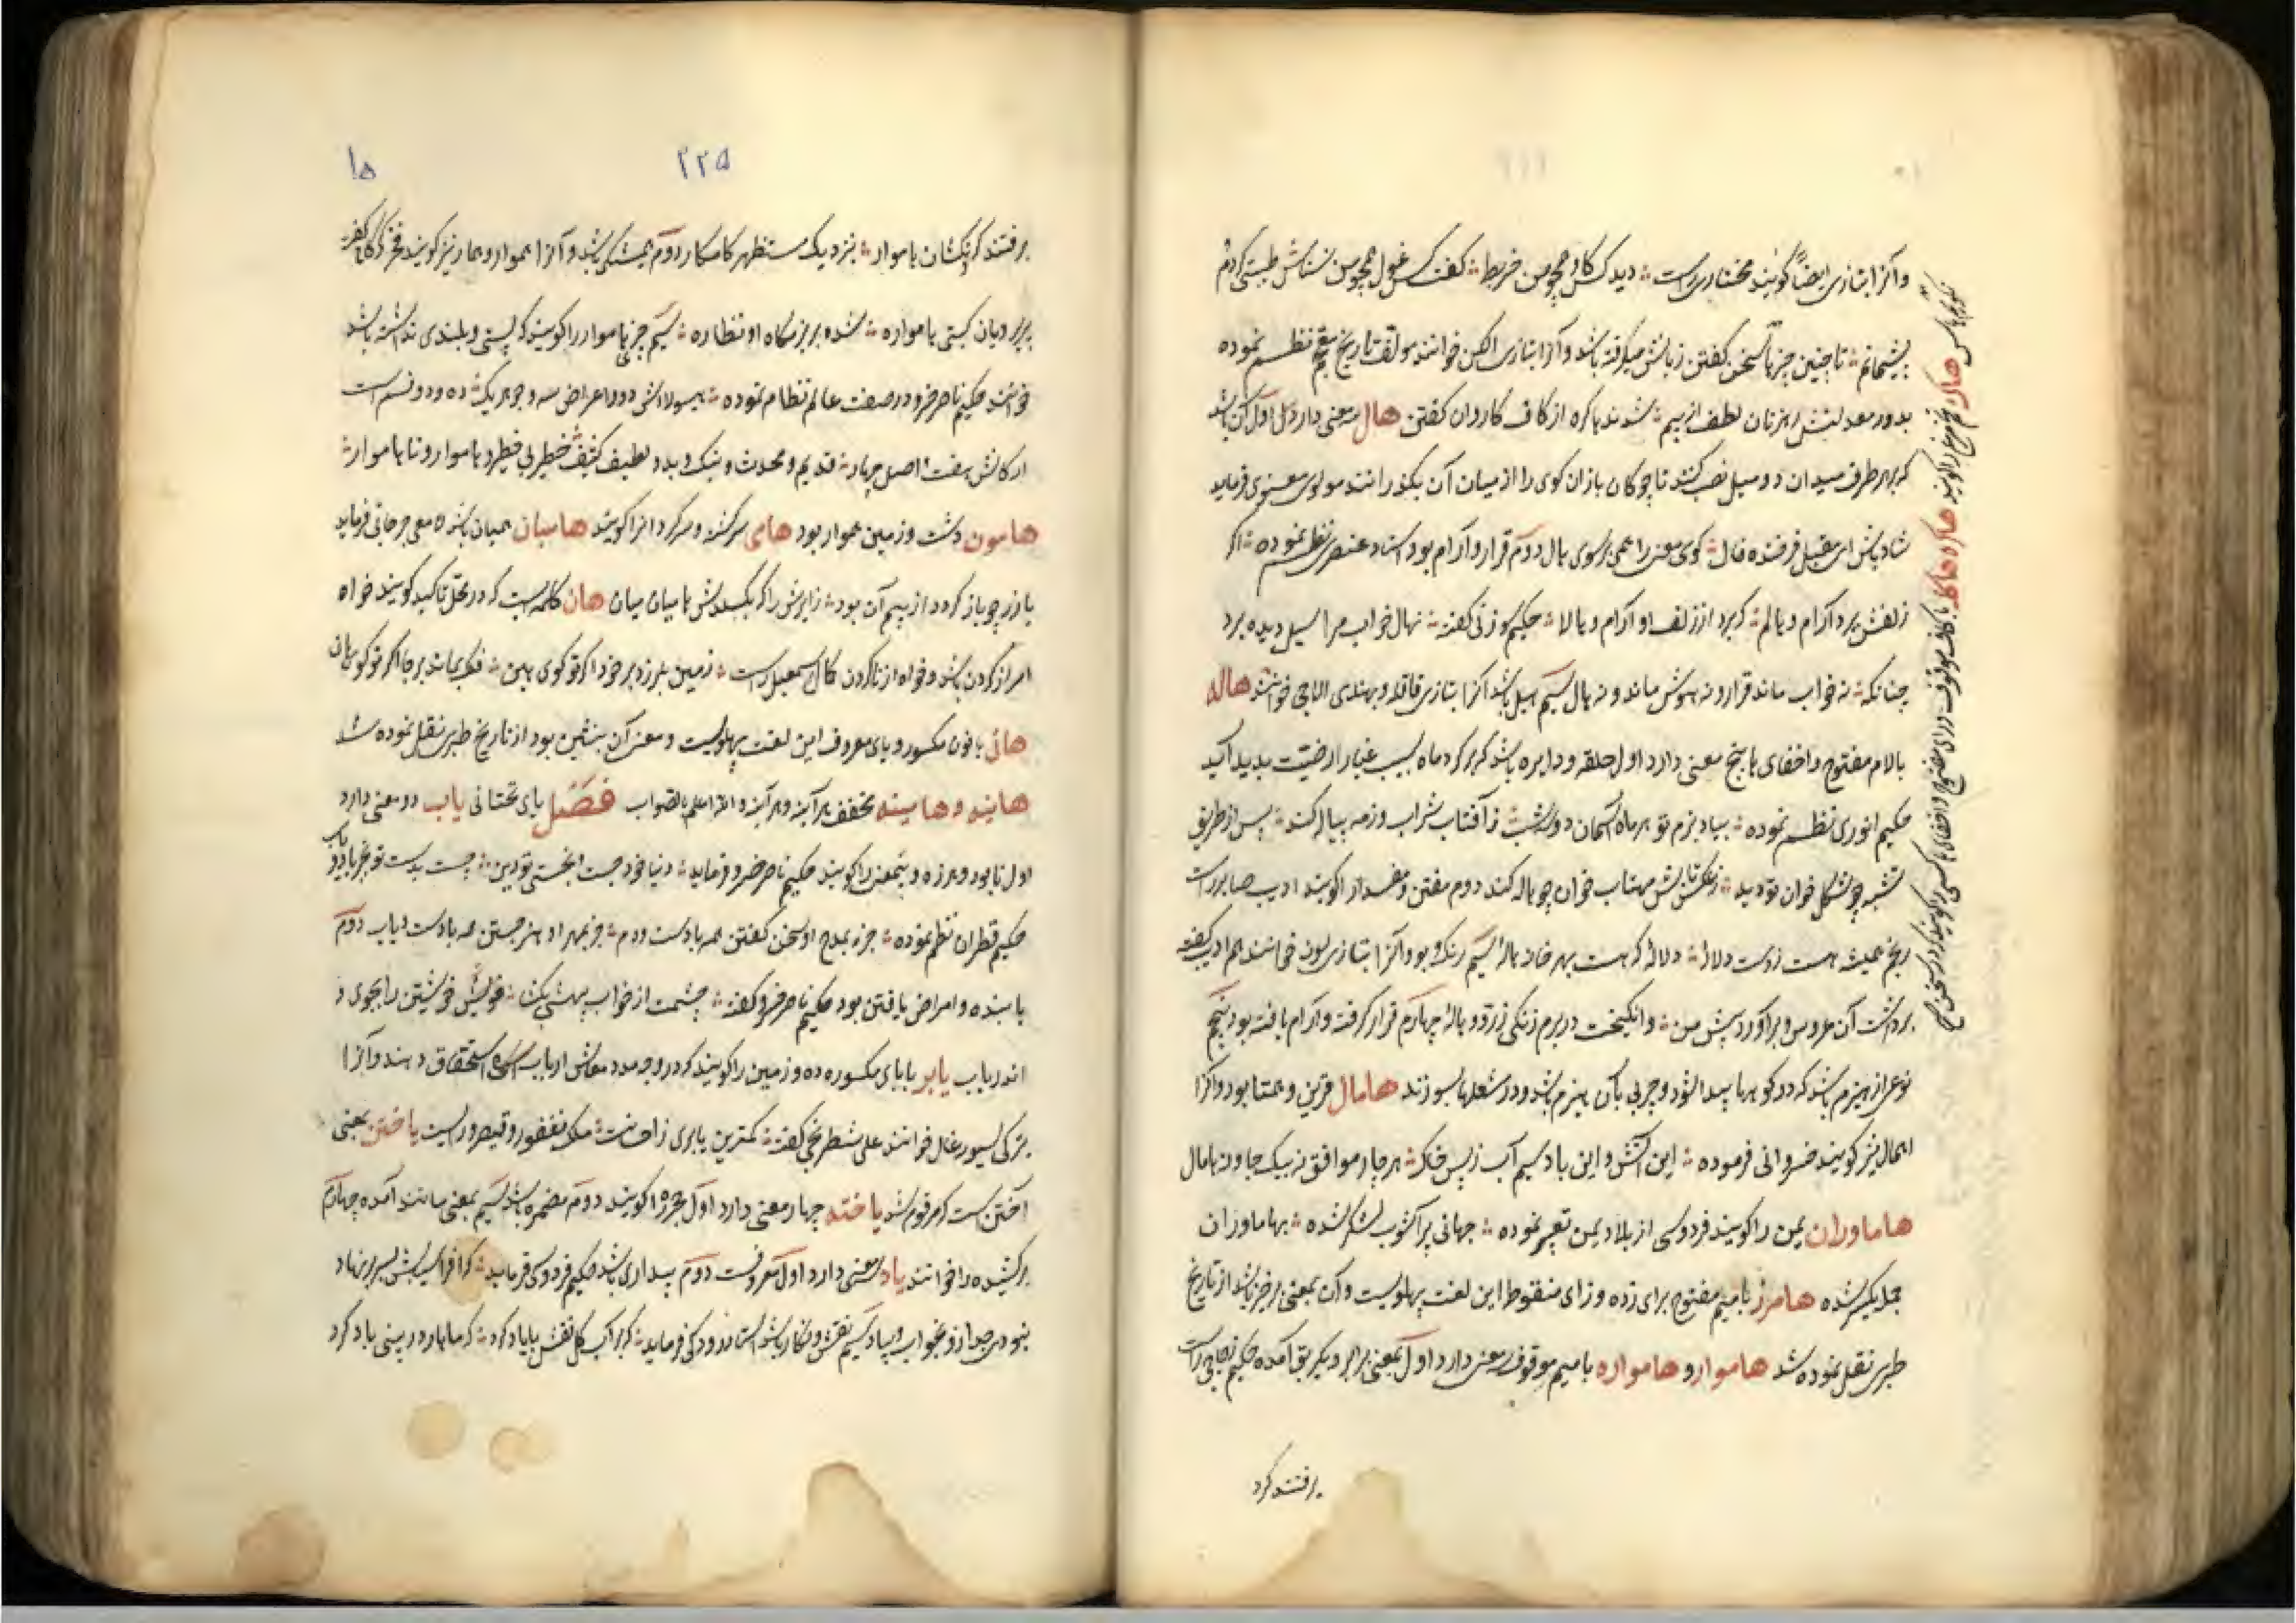 و آنرا بتازی ایضاً گویند مختاری راست دید کس کاو همچو من خربط گفت کس غول همچو من نسناس طبیتی کردم
پشیمانم تا چنین چیزها سخن گفتن زبانش میگرفته باشد و آنرا بتازی الکن خوانند مولف تاریخ معجم نظم نموده
بدور معدلتش رهزنان لطف از بیم شدند با کره از کاف کاروان گفتن هال معنی دارد اول آن باشد
که بر هر طرف میدان دو میل نصب کنند تا چوکان بازان کوی را از میان آن بگذرانند مولوی معنوی فرماید
شادباش ای مقبل فرخنده فال کوی معنی را همی بر سوی هال دوم قرار و آرام بود استاد عنصری نظم نموده اکر
زلفش برد آرام و هالم که برد از زلف او آرام و هالا حکیم سوزنی گفته نهال خواب مرا سیل دیده برد
چنانکه نه خواب ماند قرار و نه هوش ماند و نه هال سیم هیل باشد آنرا بتازی قاقله و بهندی الاچی خوانند هاله
بالام مفتوح و اخفای ها پنج معنی دارد اول حلقه و دایره باشد که بر کرد ماه بسبب غبار ارضیت پدید آید
حکیم انوری نظم نموده بیاد بزم تو هر ماه آسمان دو شبت ز آفتاب شراب و ز مه پیاله کند پس از طریق
تشبه چو شکل خوان تو دید ز عکس تابش مهتاب خوان چو هاله کند دوم مفتن و مفسد را گویند ادیب صابر راست
رنجم همیشه هست ز دست دلاله دلاله که هست بهر خانه هاله سیم رنک و بود و آنرا بتازی لون خوانند هم ادیب گفته
برداشت آن عروس و برآورد پیش من وانگیخت در برم زنکی زرق و هاله چهارم قرار گرفته و آرام یافته بود پنجم
نوعی از هیزم باشد که در کوهها پیدا شود و چربی بآن هیزم باشد و در شعلها بسوزند هامال قرین و همتا بود و آنرا
همال نیز گویند خسروانی فرموده این آتش و این باد سیم آب ز پس خاک هر چار موافق نه بیک جا و نه هامال
هاماوران یمن را گویند فردوسی از بلاد یمن تعبیر نموده جهانی پر آشوب لشکر شده بهاماوران
جمله یکسر شده هامرز با میم مفتوح برای زده و زای منقوط این لغت پهلویست و آن بمعنی برخیز باشد از تاریخ
طبری نقل نموده شد هاموار و هامواره با میم موقوف سه معنی دارد اول بمعنی برابر و یکطریق آمده حکیم راست
برفتند کرد
هاکره
هاکره هاکله با کاف موقوف و رای مفتوح و اخفای ها کسی را گویند که در سخن
۲۲۵
۱۵
برفتند کردنکشان هاموار بنزدیک مستظهر کامکار دوم همیشه باشد و آنرا هموار و همار نیز گویند فخر گرگانی گفته
پریرویان کیتی هامواره شده بر بزمگاه او نظاره سیم چیزی هاموار را گویند که پستی و بلندی نداشته باشد
خوانند حکیم ناصر خسرو در صفت عالم نظام نموده هیولااش دو و اعراض سه و جوهر یک ده و دو قسم است
ارکانش هفت اصل چهار قدیم و محدث و نیک و بد و لطیف کثیف خطیر بی خطر و هاموار و ناهاموار
هامون دشت و زمین هموار بود هامی سرکشته و سرکردان را گویند هامیان همیان باشد لامعی جرجانی فرماید
باز رچو باز کردد از بیم آن بود زایرش را که بکسلدش هامیان میان هان کلمه ایست که در محل تاکید گویند خواه
امر از کردن باشد و خواه از ناکردن کمال اسمعیل راست زمین بلرزد بر خود اکر تو کوی هین فلک بماند بر جا اکر تو کوی هان
هانی بانون مکسور و یای معروف این لغت پهلویست و معنی آن بنشین بود از تاریخ طبری نقل نموده شد
هاینه و هایینه مخفف هر آینه و هر آیینه و الله اعلم بالصواب فصل یای تحتانی یاب دو معنی دارد
اول نابود و هرزه و بیمعنی را گویند حکیم ناصر خسرو فرماید دنیا خود جست نجستی تو دین چیست بدست تو جز باد و یاب
حکیم قطران نظم نموده جز بمدح او سخن گفتن همه بادست و دم جز بمهر او هنر جستن همه بادست و یاب دوم
یابنده و امر از یافتن بود حکیم ناصر خسرو گفته چشمت از خواب بیهشی بکشا خویش خویشتن را بجوی و
اندریاب یابر با بای مکسوره ده و زمین را گویند که در وجه مدد معاش ارباب استحقاق دهند و آنرا
بترکی سیورغال خوانند علی شطرنجی گفته کمترین یابری ز انعامت ملک فغفور و قیصر و راست یاختن بمعنی
آختن است که مرقوم شد یاخته چهار معنی دارد اول حجره را گویند دوم مضمره باشد سیم بمعنی مانند آمده چهارم
برکشیده را خوانند یاد معنی دارد اول معروفست دوم بیداری باشد حکیم فردوسی فرماید که افراسیابش بسر بر نهاد
نبودی جدا زو بخواب و بیاد سیم نقش و نگار باشد استاد رودکی فرماید که بر آب و کل نقش یا یاد کرد که ماهار در بینی باد کرد